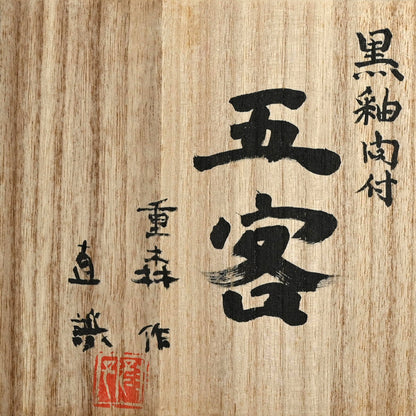 黒釉向付
五客
重森 作
直